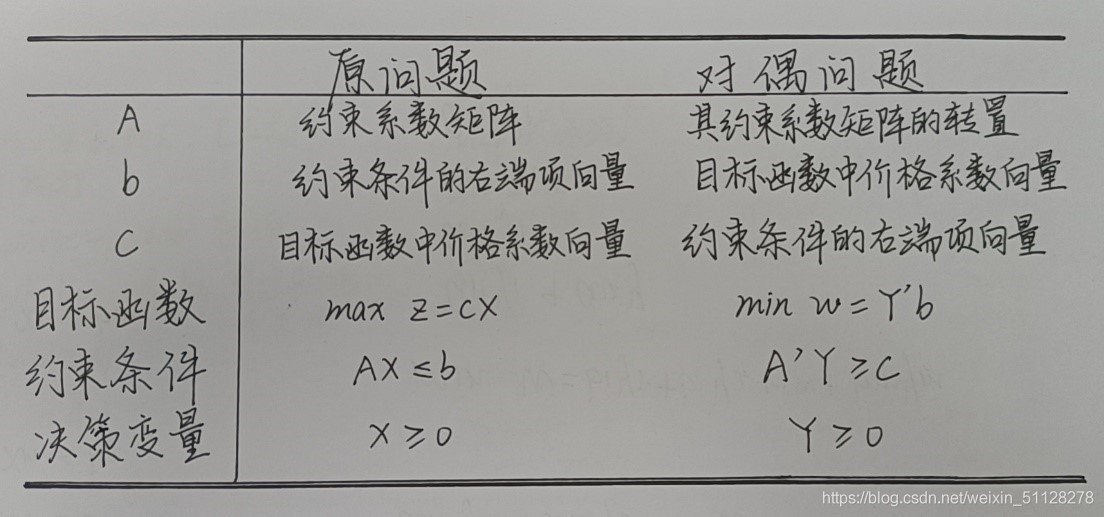 原问题 对偶问题
A 约束系数矩阵 其约束系数矩阵的转置
b 约束条件的右端项向量 目标函数中价格系数向量
C 目标函数中价格系数向量 约束条件的右端项向量
目标函数 max z=CX min w=Y'b
约束条件 AX≤b A'Y≥C
决策变量 X≥0 Y≥0
https://blog.csdn.net/weixin_51128278